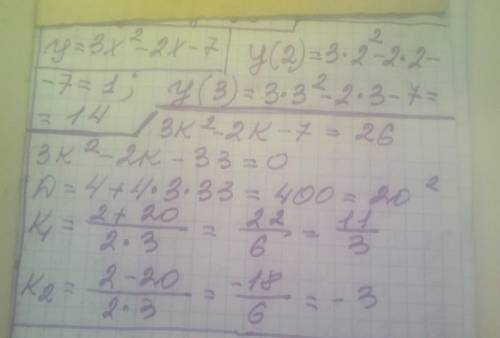 y=3x²-2x-7
y(2)=3·2²-2·2-
-7=1;
y(3)=3·3²-2·3-7=
=14
3к²-2к-7=26
3к²-2к-33=0
D=4+4·3·33=400=20²
К₁=(2+20)/(2·3)=22/6=11/3
К₂=(2-20)/(2·3)=-18/6=-3